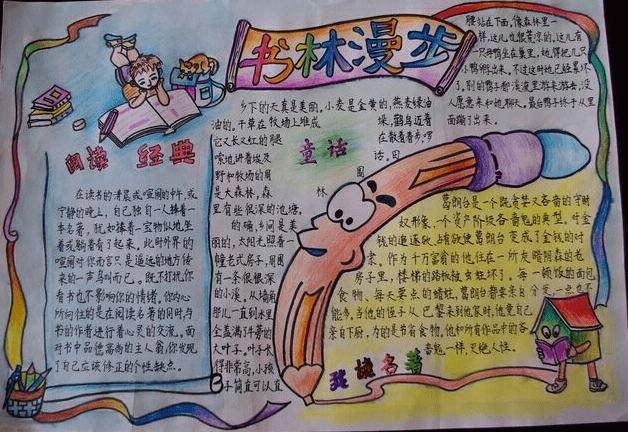 书林漫步
阅读 经典
在读书的清晨或喧闹的中午,或
宁静的晚上,自己独自一人捧着一
本名著,犹如捧着一宝物似地,坐
着或躺着看了起来,此时外界的
喧闹对你而言只是遥远的地方传
来的一声鸟叫而已。既不打扰你
看书也不影响你的情绪,你内心
所向往的是在阅读名著的同时,与
书的作者进行着心灵的交流。面
对书中品德高尚的主人翁,你发现
了自己应该修正的个性缺点。
童话
乡下的天真是美丽。小麦是金黄的,燕麦绿油
油的。干草在牧场上堆成垛,鹳鸟迈着
它又长又红的腿在散着步,啰
嗦地讲着埃及话。田
野和牧场的周围
是大森林,森林
里有些很深的池塘。
的确,乡间是美
丽的,太阳光照着一
幢老式房子,周围
有一条很深
的小溪。从墙角
那儿一直到水里
全盖满牛蒡的
大叶子。叶子长
得非常高,小孩
子简直可以直
腰站在下面,像森林里一
样,这儿也很荒凉的。这儿有
一只母鸭坐在巢里,她得把几只
小鸭孵出来。不过这时她已经累坏
了。别的鸭子都溪流里游来游去,没
人愿意来和她聊天。最后鸭子终于从里
面蹦了出来。
葛朗台是一个既贪婪又吝啬的守财
奴形象,一个资产阶级吝啬鬼的典型。对金
钱的追逐欲、占有欲使葛朗台变成了金钱的对
象。作为千万富翁的他,住在一所灰暗阴森的老
房子里,楼梯的踏板被虫蛀坏了。每一顿饭的面包
食物、每天要点的蜡烛,葛朗台都要亲自分发一点也不
能多。当他的侄子从巴黎来到他家时,他竟自己
亲自下厨,为的是节省食物。他和所有作品中的吝
啬鬼一样,灭绝人性。
我读名著